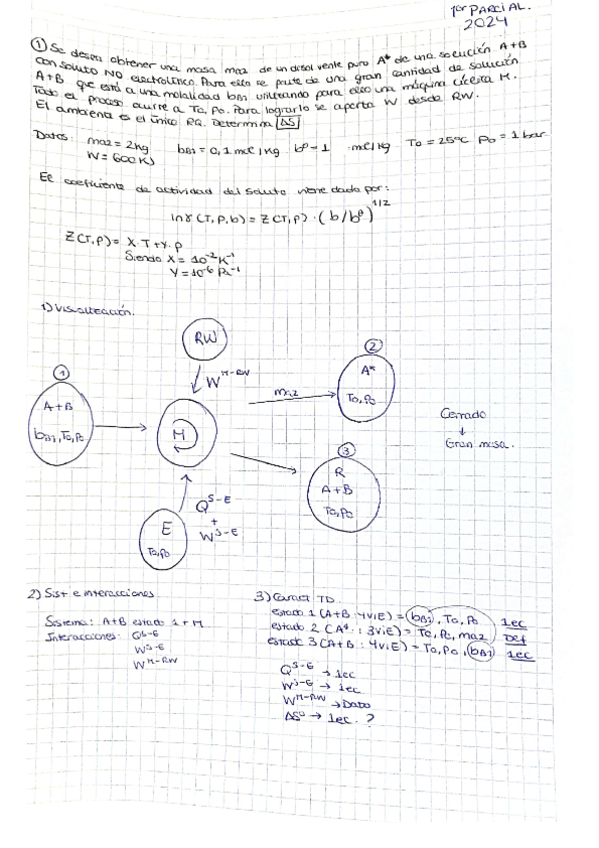 1er PARCIAL.
2024
① Se desea obtener una masa ma2 de un disolvente puro A* de una solución A+B
con soluto NO electrolítico. Para ello se parte de una gran cantidad de solución
A+B que está a una molalidad bB1 utilizando para ello una máquina cíclica M.
Todo el proceso ocurre a To, Po. Para lograrlo se aporta W desde RW.
El ambiente es el único RQ. Determina ΔS
Datos: ma2 = 2kg bB1 = 0,1 mol/kg b⁰ = 1 mol/kg To = 25ºC Po = 1 bar
W = 600KJ
El coeficiente de actividad del soluto viene dado por:
ln γ (T, P, b) = Z (T, P) · (b/b⁰)^1/2
Z(T,P) = X·T + Y·P
Siendo X = 10⁻² K⁻¹
Y = 10⁻⁶ Pa⁻¹
1) Visualización.
RW
W^M-RW
① A+B
bB1, To, Po
M
ma2
② A*
To, Po
③ R
A+B
To, Po
Cerrado
↓
Gran masa.
E
To, Po
Q^S-E
+
W^S-E
2) Sist e interacciones
Sistema: A+B estado 1 + M
Interacciones: Q^S-E
W^S-E
W^M-RW
3) Caract TD.
estado 1 (A+B : 4VIE) = bB1, To, Po 1ec
estado 2 (A* : 3VIE) = To, Po, ma2 Def
estado 3 (A+B : 4VIE) = To, Po, bB1 1ec
Q^S-E → 1ec
W^S-E → 1ec
W^M-RW → Dato
ΔS^U → 1ec. ?